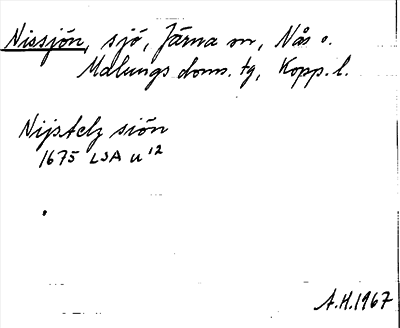 Nissjön, sjö, Järna sn, Nås o.
Malungs doms. tg, Kopp. l.
Nijstelz siön
1675 LSA U 12
A.H. 1967